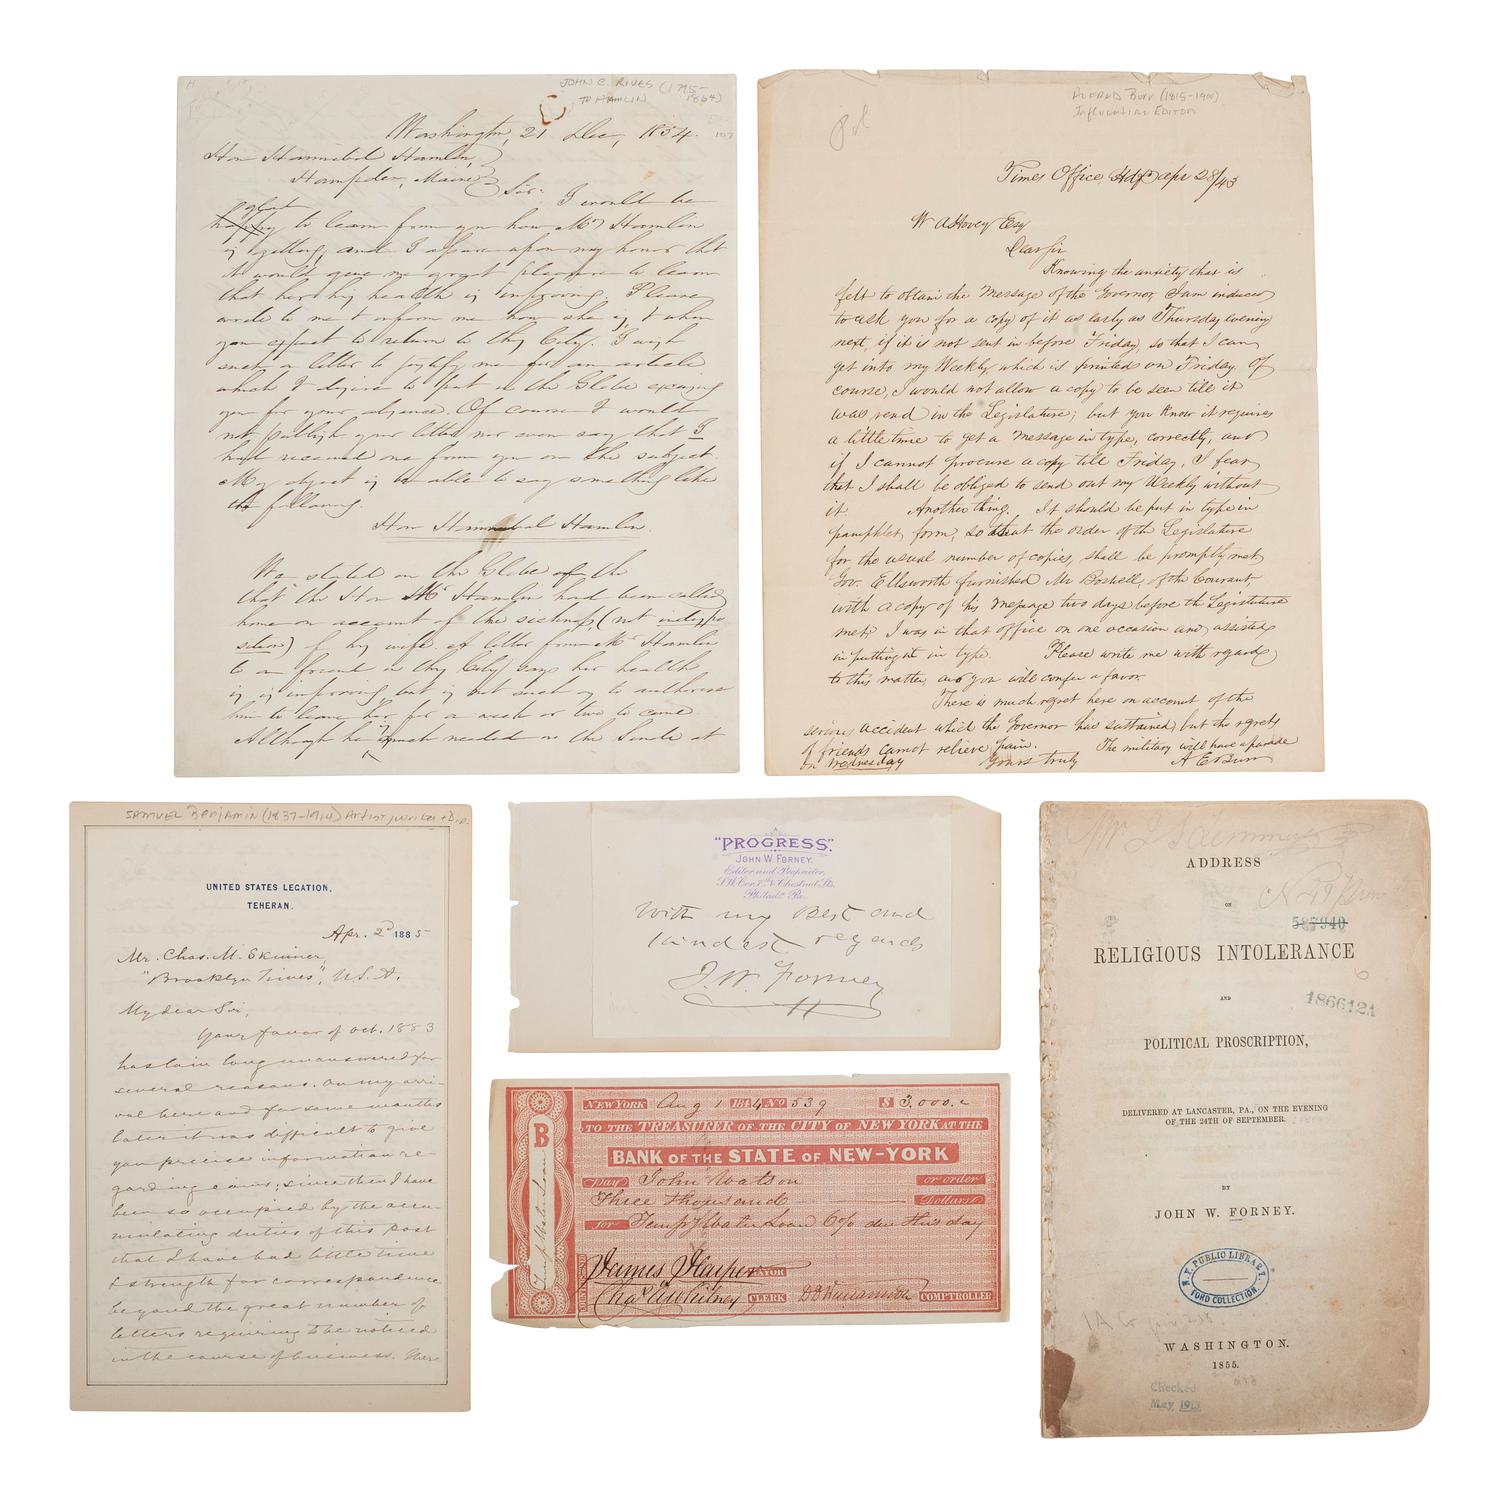 JOHN C. RIVES (1795-
1864)
TO HAMLIN
Washington, 21 Dec, 1854.
Hon Hannibal Hamlin,
Hampden, Maine
Sir: I would be
glad
happy to learn from you how Mrs Hamlin
is getting, and I assure upon my honor that
it would give me great pleasure to learn
that her health is improving. Please
write to me & inform me how she is, & when
you expect to return to this City. I wish
such a letter to justify me for an article
which I desire to put in the Globe excusing
you for your absence. Of course I would
not publish your letter nor even say that I
had received one from you on the subject.
My object is to be able to say something like
the following.
Hon Hannibal Hamlin.
We stated in the Globe of the
that the Hon Mr Hamlin had been called
home on account of the sickness, (not indispo
sition) of his wife. A letter from Mr Hamlin
to a friend in this City says her health
is improving, but is not such as to authorise
him to leave her for a week or two to come
Although he is much needed in the Senate at
ALFRED Burr (1815-1900)
Influential EDITOR
Times Office, Hdf apr 28/43
W A Hovey Esq
Dear Sir
Knowing the anxiety that is
felt to obtain the Message of the Governor, I am induced
to ask you for a copy of it as early as Thursday evening
next, if it is not sent in before Friday, so that I can
get into my Weekly which is printed on Friday. Of
course, I would not allow a copy to be seen till it
was read in the Legislature; but you know it requires
a little time to get a message in type, correctly, and
if I cannot procure a copy till Friday, I fear
that I shall be obliged to send out my Weekly without
it. Another thing. It should be put in type in
pamphlet form, so that the order of the Legislature
for the usual number of copies, shall be promptly met
Gov. Ellsworth furnished Mr Boswell, of the Courant,
with a copy of his message two days before the Legislature
met. I was in that office on one occasion and assisted
in putting it in type. Please write me with regard
to this matter, and you will confer a favor.
There is much regret here on account of the
serious accident which the Governor has sustained, but the regrets
of friends cannot relieve pain. The military will have a parade
on Wednesday Yours truly A E Burr
SAMUEL Benjamin (1837-1914) Artist, writer + Dip.
UNITED STATES LEGATION,
TEHERAN.
Apr. 2d 1885
Mr. Chas. M. Skinner,
"Brooklyn Times", U.S.A.
My dear Sir,
Your favor of Oct. 1883
has lain long unanswered for
several reasons. On my arri-
val here and for some months
later it was difficult to give
you precise information re-
garding coins; since then I have
been so occupied by the accu-
mulating duties of this post
that I have had little time
& strength for correspondence
beyond the great number of
letters requiring to be noticed
in the course of business. There
"PROGRESS."
JOHN W. FORNEY,
Editor and Proprietor,
S.W. Cor. 7th & Chestnut Sts.
Philada. Pa.
With my Best and
kindest regards
J. W. Forney
NEW YORK Aug 1 1844 No 539 $ 3,000.
TO THE TREASURER OF THE CITY OF NEW YORK AT THE
BANK OF THE STATE OF NEW-YORK
Pay John Watson or order
Three thousand Dollars
for Tempy Water Loan 6% due this day
James Harper MAYOR
CLERK COMPTROLLER
B
Temp Water Loan
ADDRESS
ON
587940
RELIGIOUS INTOLERANCE
AND
186612A
POLITICAL PROSCRIPTION,
DELIVERED AT LANCASTER, PA., ON THE EVENING
OF THE 24TH OF SEPTEMBER.
BY
JOHN W. FORNEY.
N.Y. PUBLIC LIBRARY.
FORD COLLECTION.
WASHINGTON.
1855.
Checked
May 1913